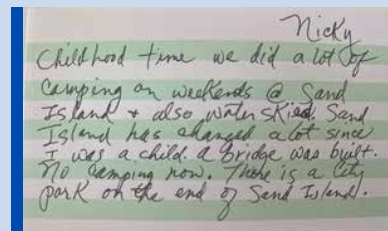 Nicky
Childhood time we did a lot of
camping on weekends @ Sand
Island & also water skied. Sand
Island has changed a lot since
I was a child. a bridge was built.
No camping now. There is a city
park on the end of Sand Island.